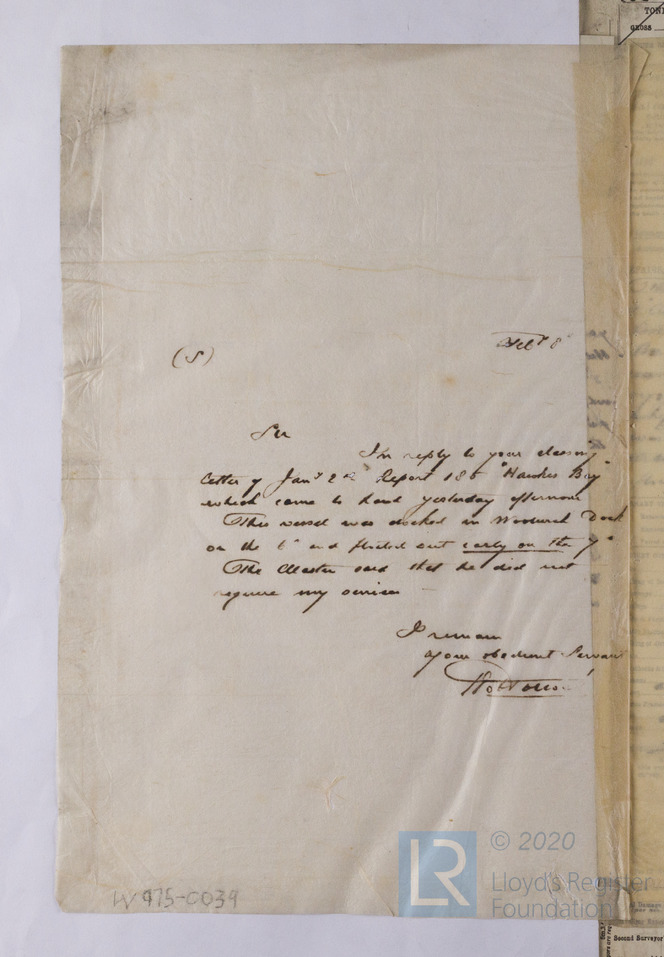 TON
GROSS
(S)
Feby 8
Sir
In reply to your
letter of Jany 2nd Report 186 "Hawkes Bay"
which came to hand yesterday afternoon
This vessel was docked in Woolwich Dock
on the 6th and floated out early on the 7th
The Master said that he did not
require my services
I remain
your obedient Servant
W 975-0039
LR
© 2020
Lloyd's Register
Foundation
Second Surveyor